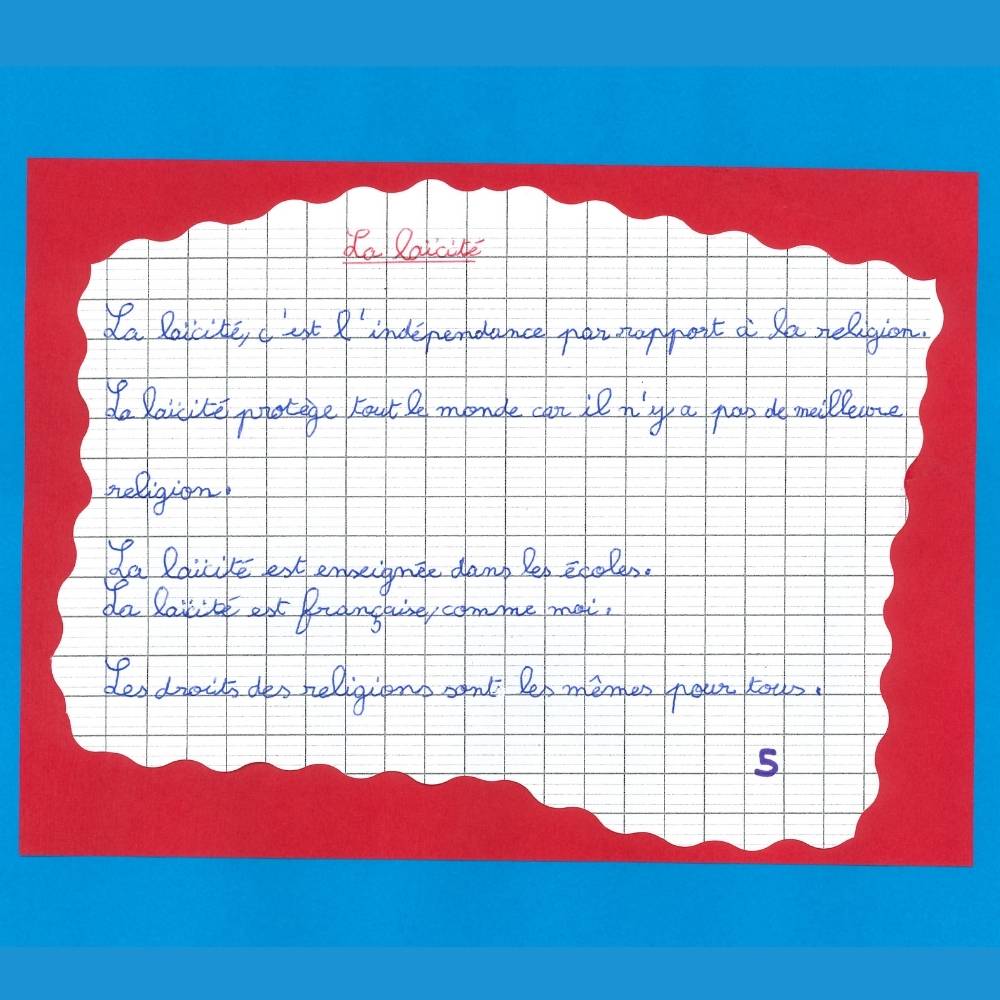 La laïcité
La laïcité, c'est l'indépendance par rapport à la religion.
La laïcité protège tout le monde car il n'y a pas de meilleure
religion.
La laïcité est enseignée dans les écoles.
La laïcité est française, comme moi.
Les droits des religions sont les mêmes pour tous.
S